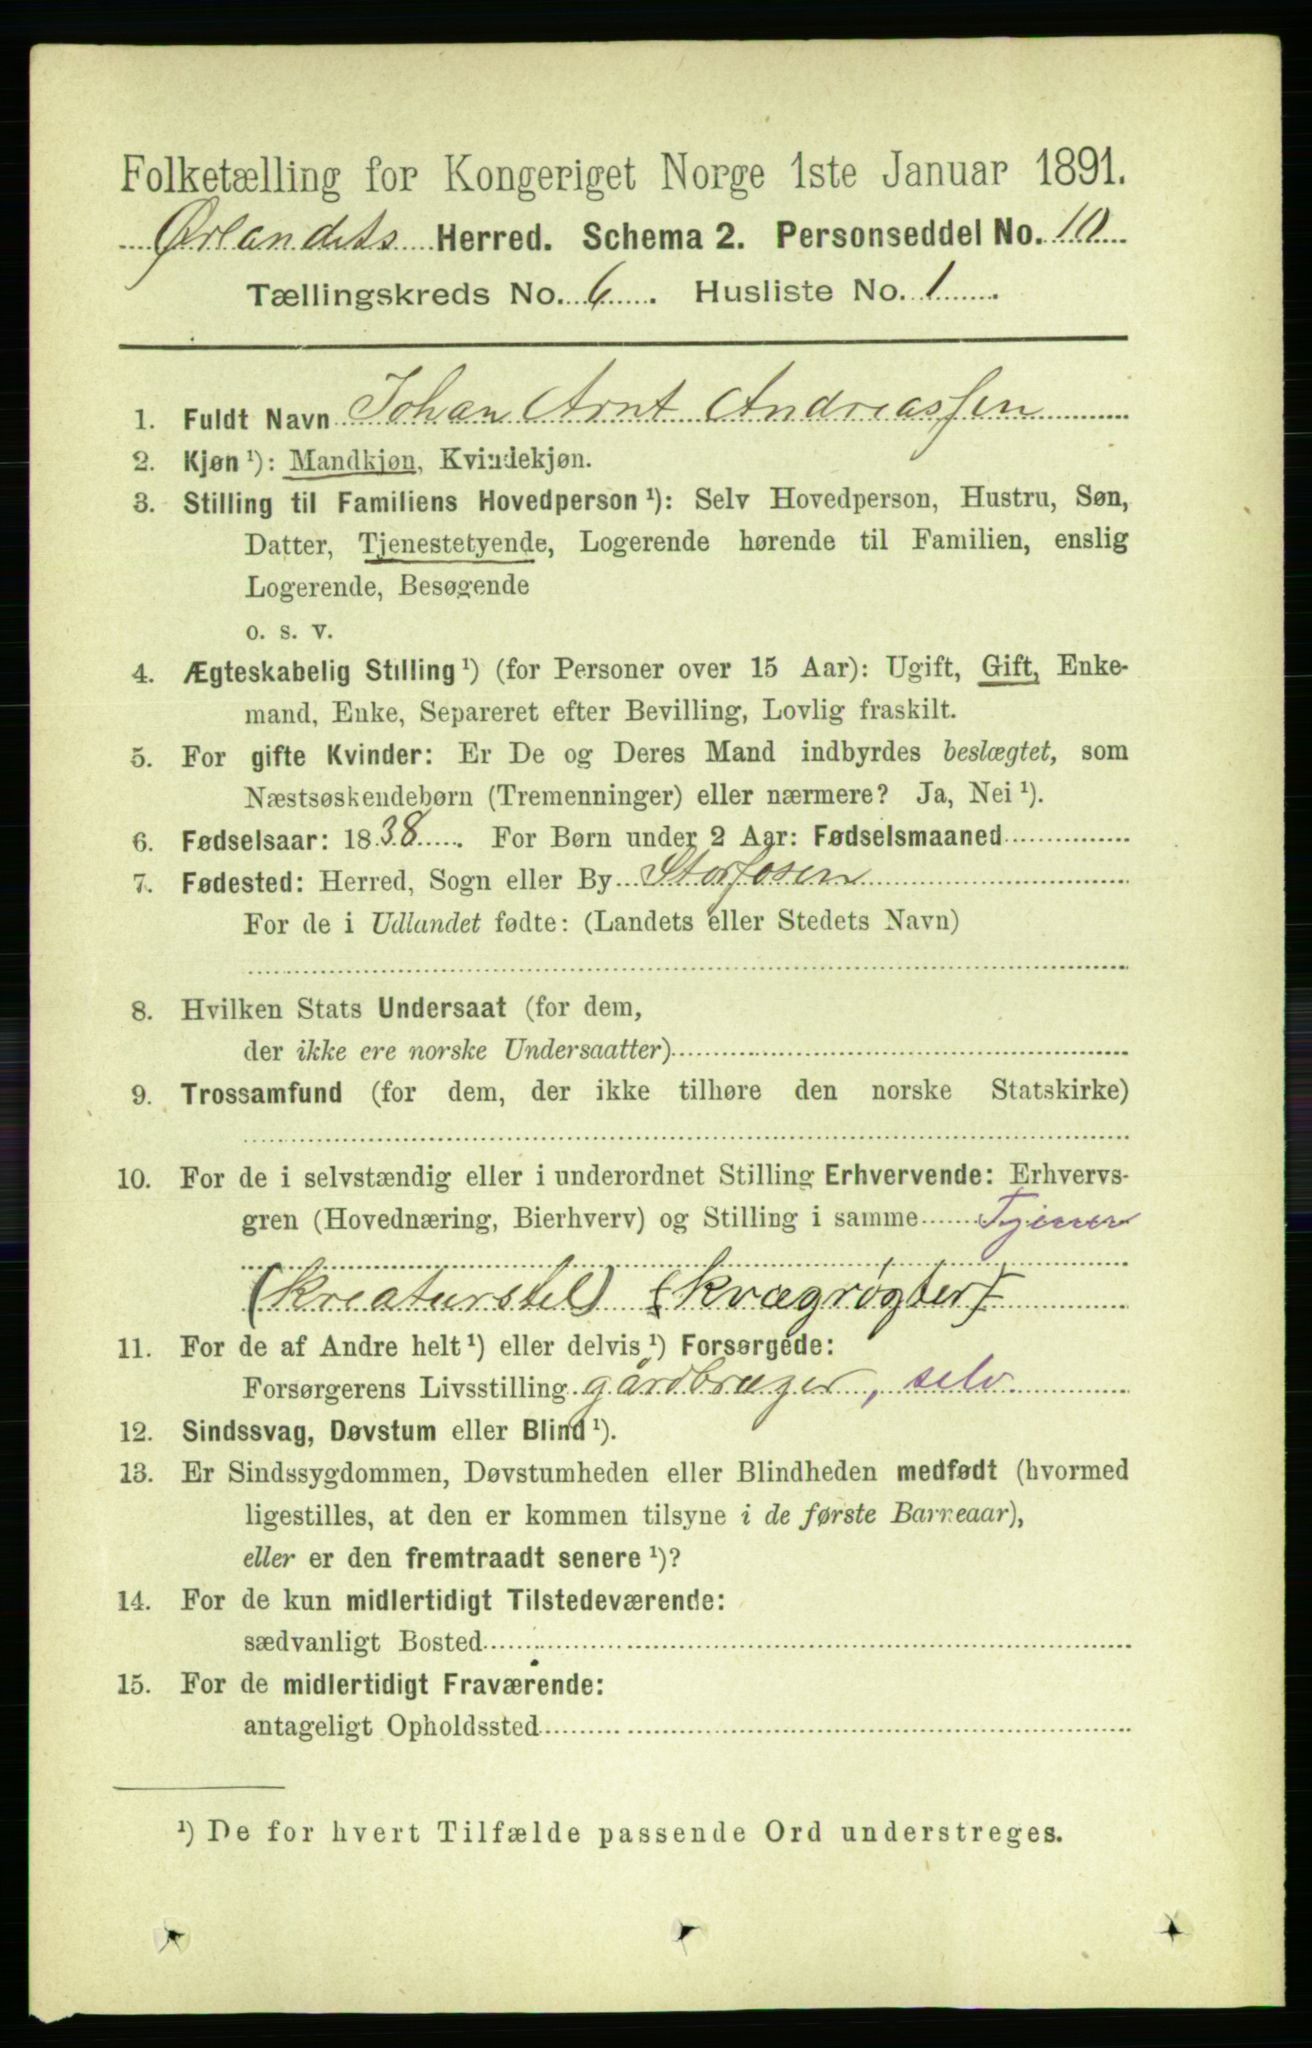 Folketælling for Kongeriget Norge 1ste Januar 1891.
Ørlandets Herred. Schema 2. Personseddel No. 10
Tællingskreds No. 6. Husliste No. 1.
1. Fuldt Navn Johan Arnt Andreassen
2. Kjøn ¹): Mandkjøn, Kvindekjøn.
3. Stilling til Familiens Hovedperson ¹): Selv Hovedperson, Hustru, Søn,
Datter, Tjenestetyende, Logerende hørende til Familien, enslig
Logerende, Besøgende
o. s. v.
4. Ægteskabelig Stilling ¹) (for Personer over 15 Aar): Ugift, Gift, Enke-
mand, Enke, Separeret efter Bevilling, Lovlig fraskilt.
5. For gifte Kvinder: Er De og Deres Mand indbyrdes beslægtet, som
Næstsøskendebørn (Tremenninger) eller nærmere? Ja, Nei ¹).
6. Fødselsaar: 1838. For Børn under 2 Aar: Fødselsmaaned
7. Fødested: Herred, Sogn eller By Storfosen
For de i Udlandet fødte: (Landets eller Stedets Navn)
8. Hvilken Stats Undersaat (for dem,
der ikke ere norske Undersaatter)
9. Trossamfund (for dem, der ikke tilhøre den norske Statskirke)
10. For de i selvstændig eller i underordnet Stilling Erhvervende: Erhvervs-
gren (Hovednæring, Bierhverv) og Stilling i samme Tjener
(kreaturstel) (kvægrøgter)
11. For de af Andre helt ¹) eller delvis ¹) Forsørgede:
Forsørgerens Livsstilling gårdbruger, selv
12. Sindssvag, Døvstum eller Blind ¹).
13. Er Sindssygdommen, Døvstumheden eller Blindheden medfødt (hvormed
ligestilles, at den er kommen tilsyne i de første Barneaar),
eller er den fremtraadt senere ¹)?
14. For de kun midlertidigt Tilstedeværende:
sædvanligt Bosted
15. For de midlertidigt Fraværende:
antageligt Opholdssted
¹) De for hvert Tilfælde passende Ord understreges.